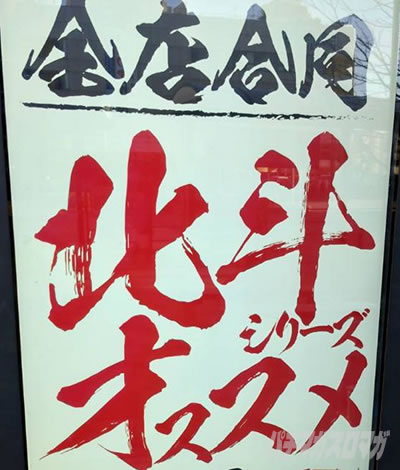 全店合同
北斗
シリーズ
オススメ
パチンカスロマガ